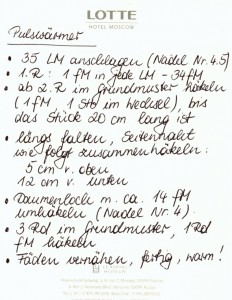 LOTTE
HOTEL MOSCOW
Pulswärmer
• 35 LM anschlagen (Nadel Nr. 4.5)
• 1. R: 1 fM in jede LM - 34 fM
• ab 2. R im Grundmuster häkeln
(1 fM, 1 Stb im Wechsel), bis
das Stück 20 cm lang ist
• längs falten, Seitennaht
wie folgt zusammenhäkeln:
5 cm v. oben
12 cm v. unten
• Daumenloch m. ca. 14 fM
umhäkeln (Nadel Nr. 4).
• 3 Rd im Grundmuster, 1 Rd
fM häkeln.
• Fäden vernähen, fertig, warm!